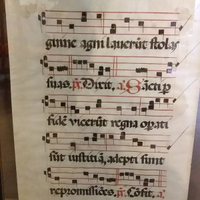 guine agni laverũt stolas
suas. ꝶ. Dirit. a. Sãcti ꝑ
fidẽ vicerũt regna oꝑati
sũt iustitiã, adepti sunt
repromissiões. ꝶ. Cõfit. a.